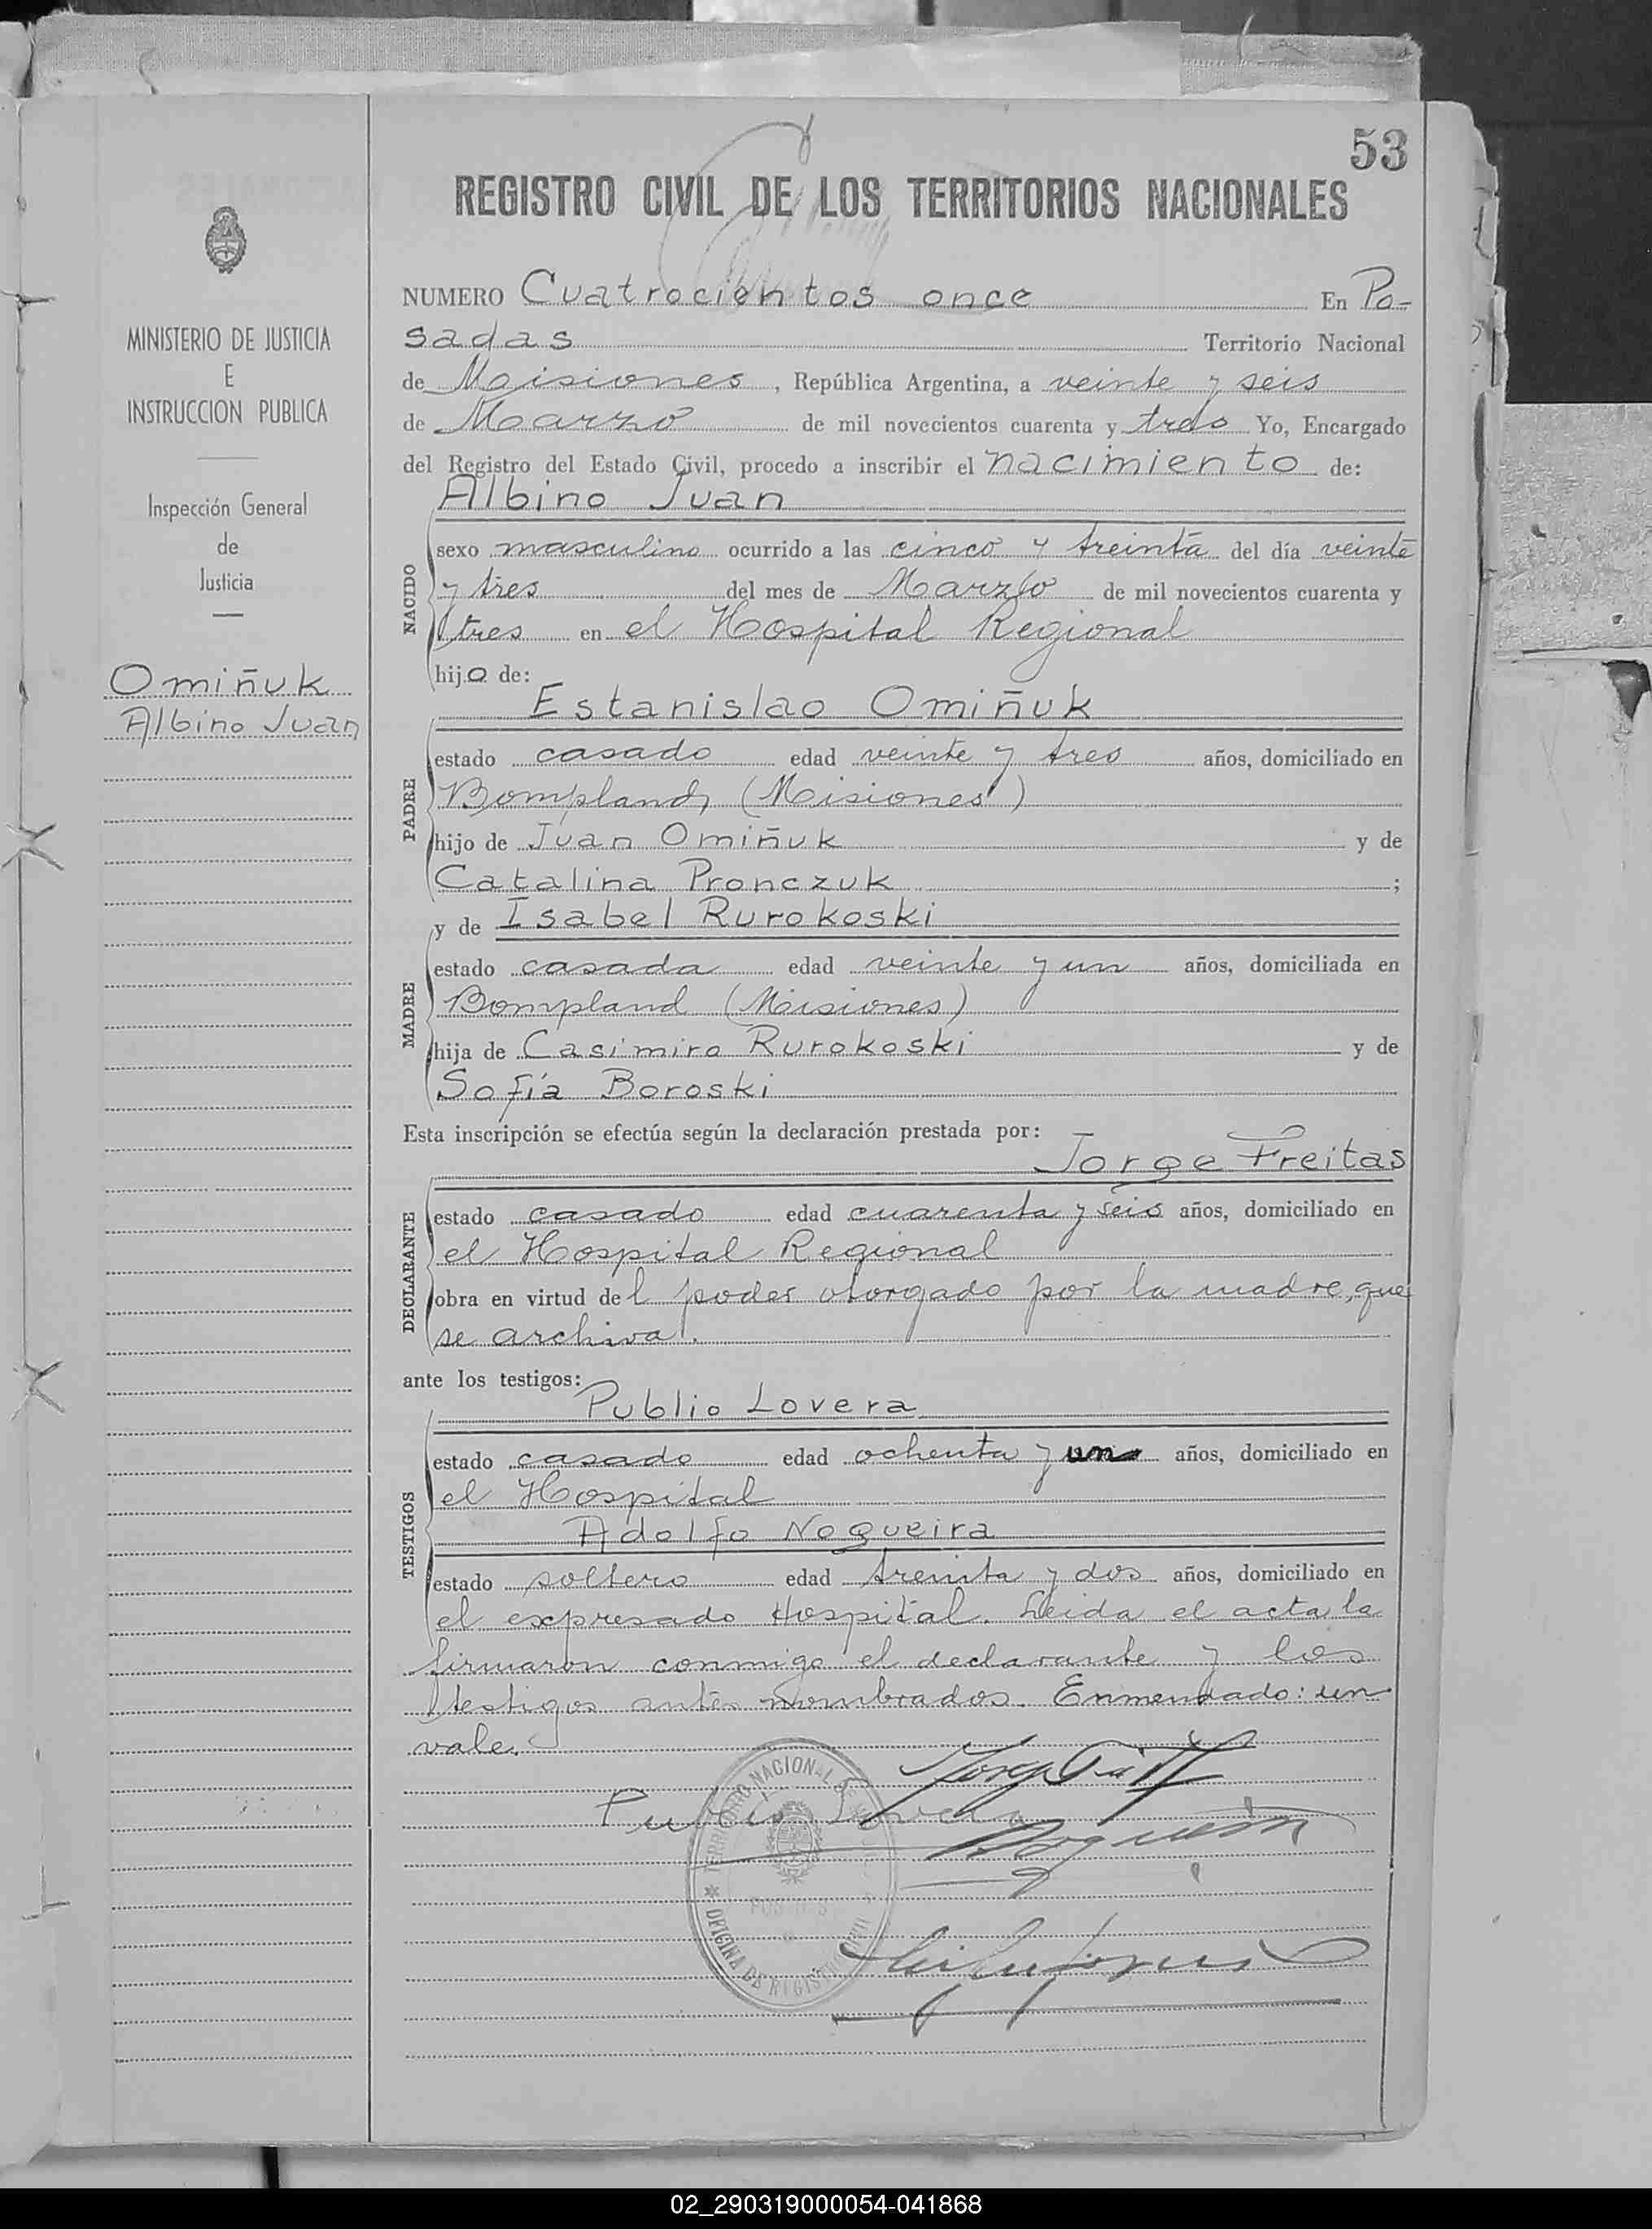 53
REGISTRO CIVIL DE LOS TERRITORIOS NACIONALES
MINISTERIO DE JUSTICIA
E
INSTRUCCION PUBLICA
Inspección General
de
Justicia
Omiñuk
Albino Juan
NUMERO Cuatrocientos once En Po-
sadas Territorio Nacional
de Misiones, República Argentina, a veinte y seis
de Marzo de mil novecientos cuarenta y tres Yo, Encargado
del Registro del Estado Civil, procedo a inscribir el nacimiento de:
Albino Juan
NACIDO
sexo masculino ocurrido a las cinco y treinta del día veinte
y tres del mes de Marzo de mil novecientos cuarenta y
tres en el Hospital Regional
hijo de:
Estanislao Omiñuk
PADRE
estado casado edad veinte y tres años, domiciliado en
Bompland, (Misiones)
hijo de Juan Omiñuk y de
Catalina Pronczuk ;
y de Isabel Rurokoski
MADRE
estado casada edad veinte y un años, domiciliada en
Bompland (Misiones)
hija de Casimiro Rurokoski y de
Sofía Boroski
Esta inscripción se efectúa según la declaración prestada por:
Jorge Freitas
DECLARANTE
estado casado edad cuarenta y seis años, domiciliado en
el Hospital Regional
obra en virtud del poder otorgado por la madre, que
se archiva.
ante los testigos:
Publio Lovera
TESTIGOS
estado casado edad ochenta y un años, domiciliado en
el Hospital
Adolfo Nogueira
estado soltero edad treinta y dos años, domiciliado en
el expresado Hospital. Leida el acta la
firmaron conmigo el declarante y los
testigos antes nombrados. Enmendado: un
vale.
Publio Lovera
TERRITORIO NACIONAL DE
OFICINA DE REGISTRO
02_290319000054-041868